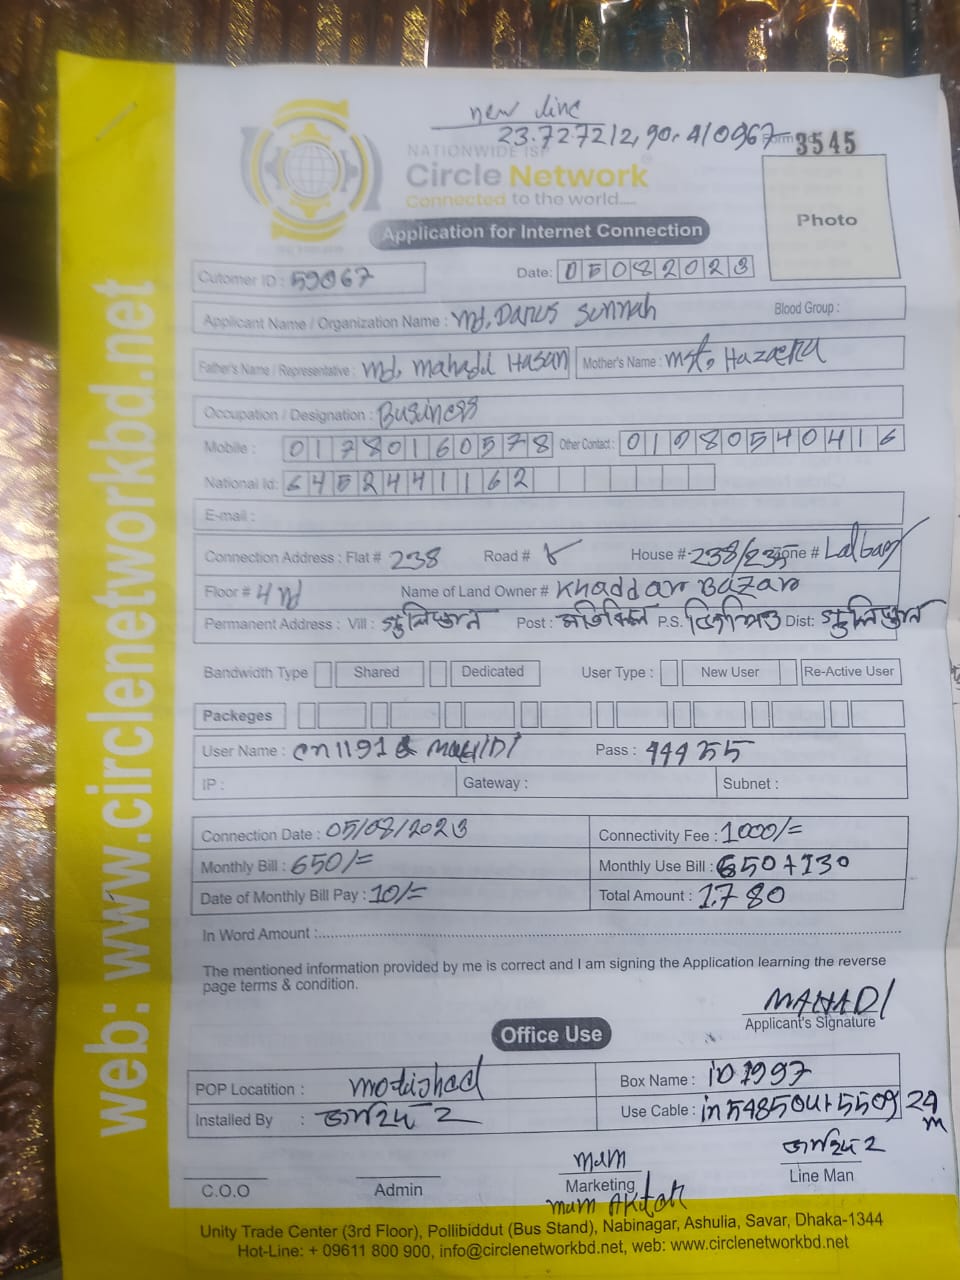 new line
23.727212, 90.410967 Form 3545
NATIONWIDE ISP
Circle Network
Connected to the world.....
Photo
Application for Internet Connection
Cutomer ID : 59067 Date: 05082023
Applicant Name / Organization Name : Md. Darus Sunnah Blood Group :
Father's Name / Representative : Md. Mahadd Hasan Mother's Name : Mst.
Occupation / Designation : Business
Mobile : 01780160578 Other Contact : 01980540416
National Id: 6452441162
E-mail :
Connection Address : Flat # 238 Road # House # 238/235 Zone # Lalbag
Floor # 4 Name of Land Owner # Khaddar Bazar
Permanent Address : Vill : গুলিস্তান Post : মতিঝিল P.S. Dist: গুলিস্তান
Bandwidth Type Shared Dedicated User Type : New User Re-Active User
Packeges
User Name : cn1191 Pass : 444255
IP : Gateway : Subnet :
Connection Date : 05/08/2023 Connectivity Fee : 1000/=
Monthly Bill : 650/= Monthly Use Bill : 650+130
Date of Monthly Bill Pay : 10/= Total Amount : 1,780
In Word Amount :
The mentioned information provided by me is correct and I am signing the Application learning the reverse
page terms & condition.
MAHADI
Applicant's Signature
Office Use
POP Locatition : Box Name : 1997
Installed By : Use Cable : in 5485 out 5509 24 m
C.O.O Admin Marketing Line Man
Unity Trade Center (3rd Floor), Pollibiddut (Bus Stand), Nabinagar, Ashulia, Savar, Dhaka-1344
Hot-Line: + 09611 800 900, info@circlenetworkbd.net, web: www.circlenetworkbd.net
web: www.circlenetworkbd.net